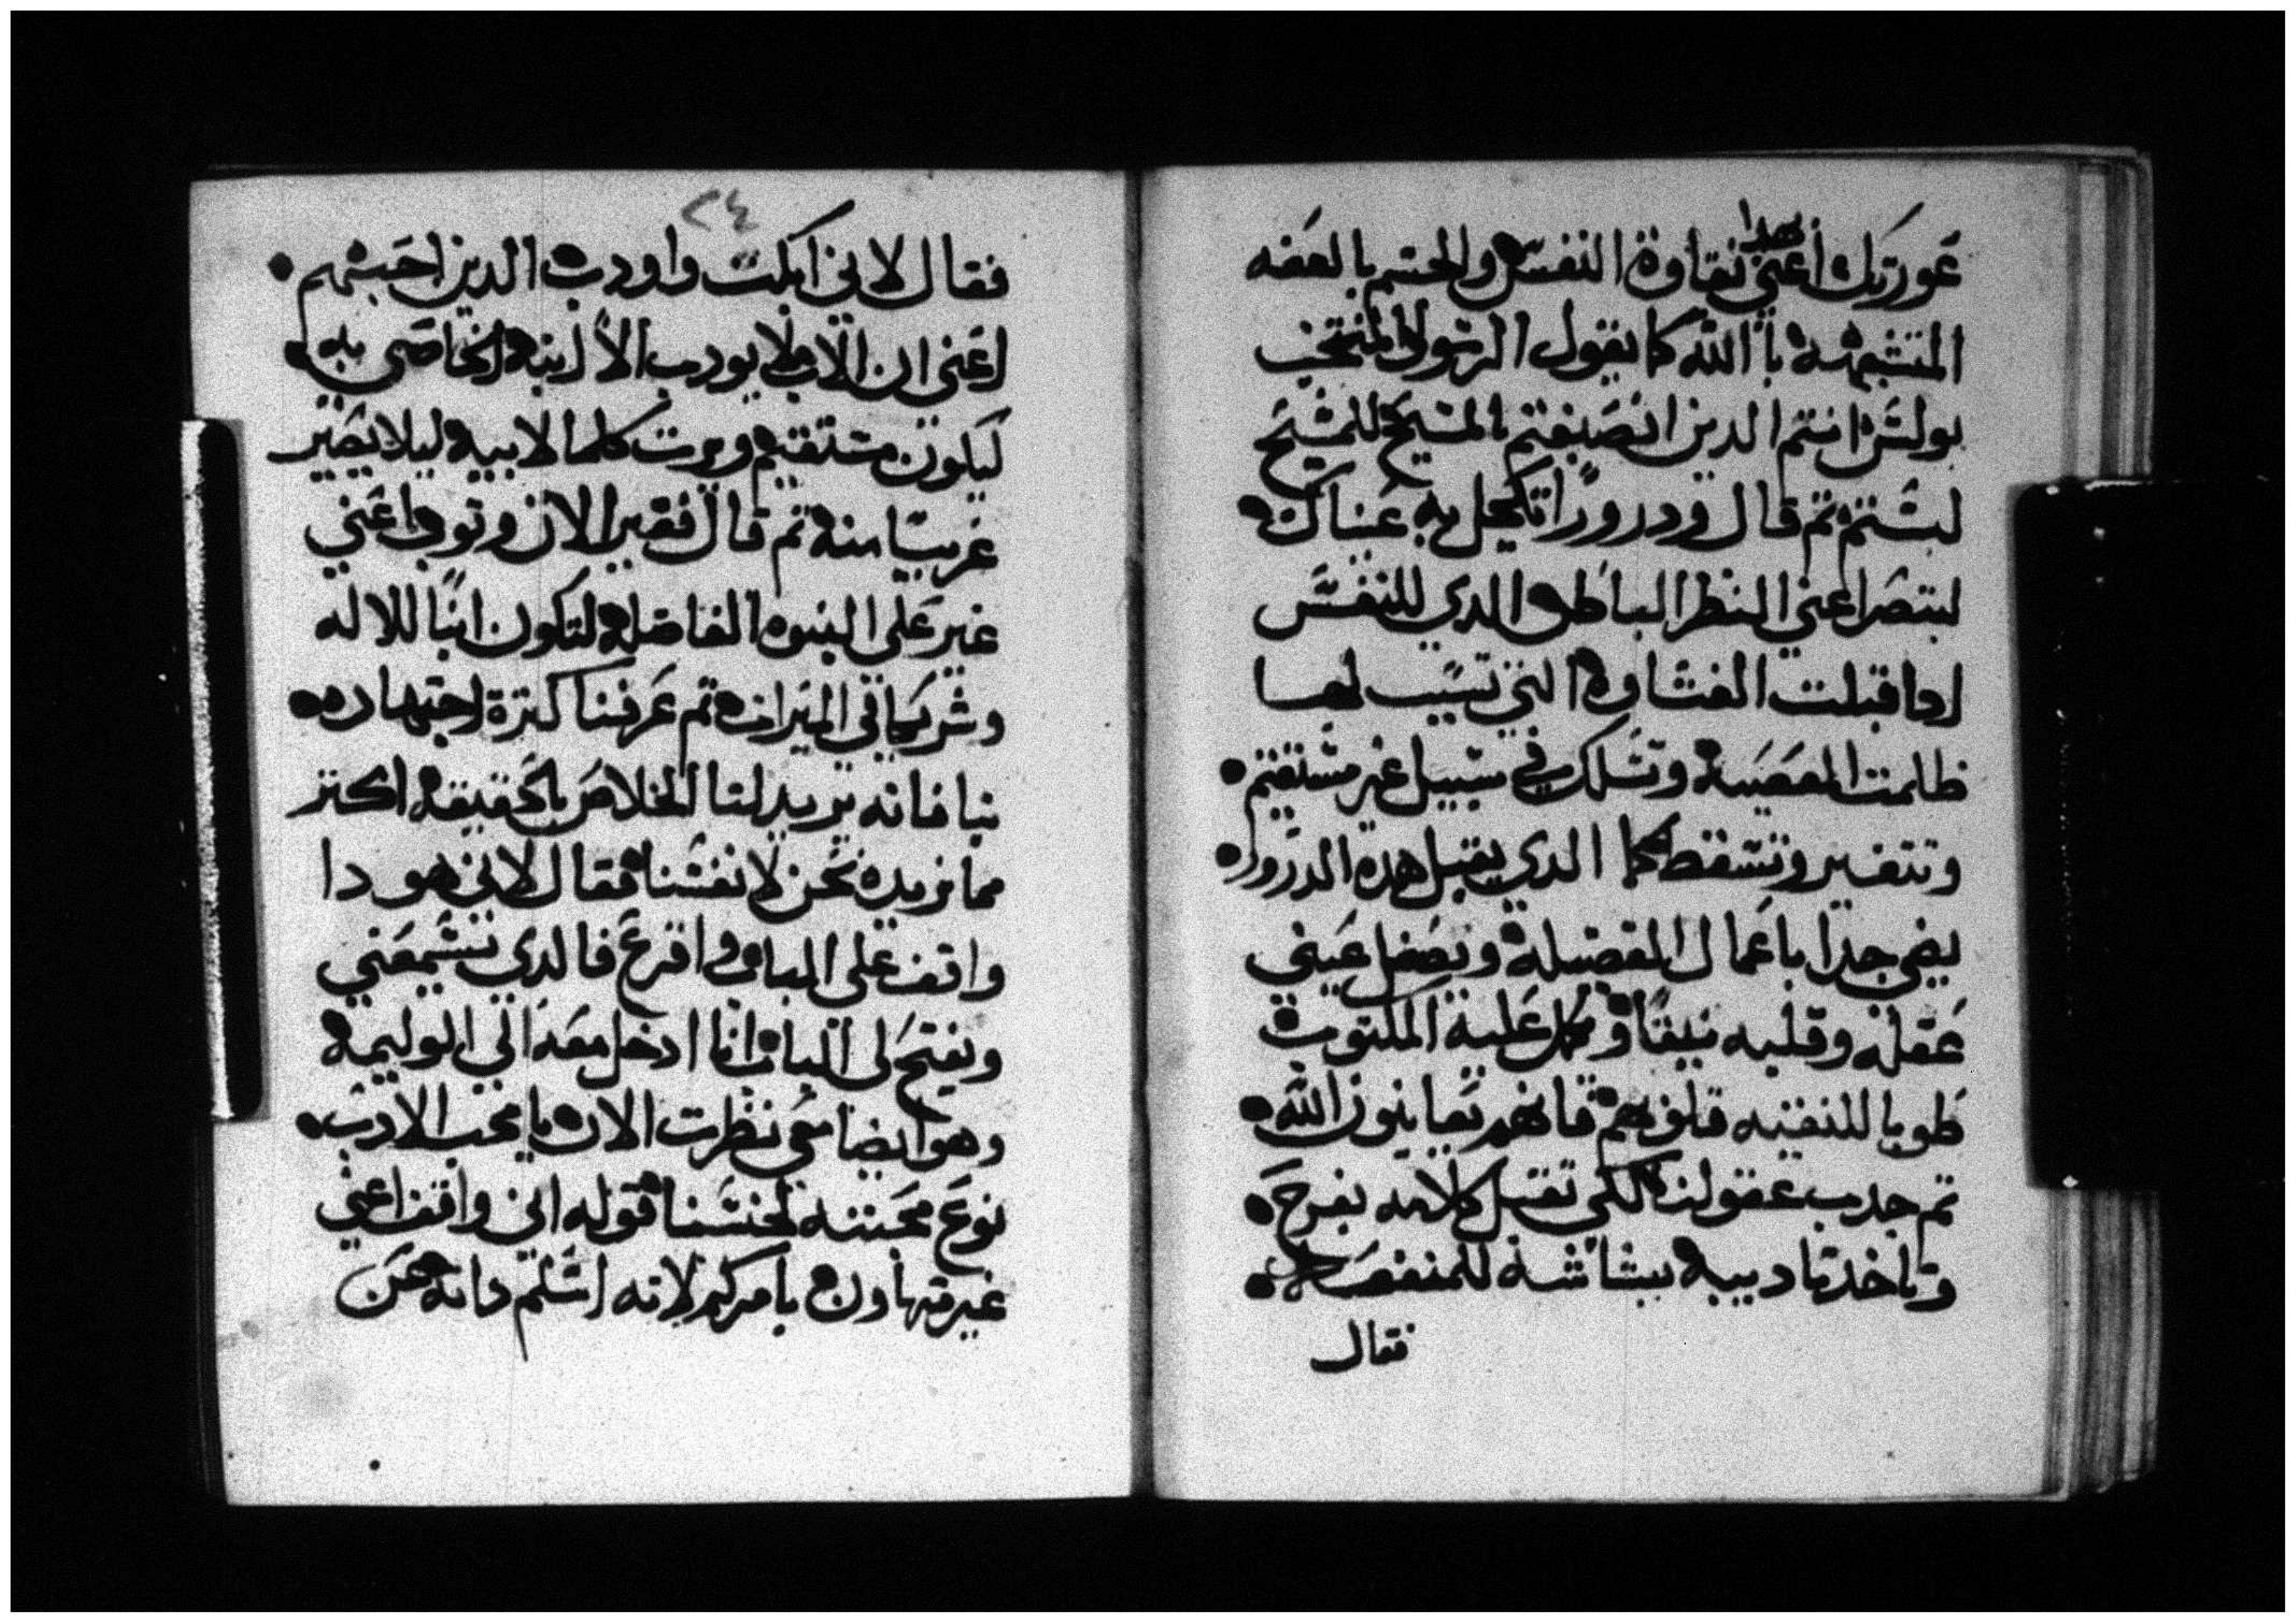 عورتك أعني بهذا نقاوة النفس والجسم بالعفه
المتشبهة بالله كما يقول الرسول المنتخب
بولس انتم الدين انصبغتم بالمسيح للمسيح
لبستم تم قال ودرورًا تكحل به عيناك
لتبصر اعني النظر الباطن الدي للنفس
ادا قبلت الغشاوه التي تسبب لها
ظلمت المعصيه وتسلك في سبيل غير مستقيم
وتتعسر وتسقط كما الدي يقبل هده الدرور
يضي جدا باعمال الفضيله ويصفل عيني
عقله وقلبه نقيًا وكمل عليه المكتوب
طوبا للنقيه قلوبهم فانهم يعاينون الله
تم جدب عقولنا لكي نقبل كلامه بفرح
وناخد تاديبه ببشاشة للمنفعه
فقال
٢٤
فقال لاني ابكت واودب الدين احبهم
اعني ان الاب لا يودب الا ابنه الخاص به
ليكون مستقيم ويرت كلما لابيه ليلا يصير
غريبًا منه تم قال فغير الان وتوب اعني
غير على البنوه الفاضله لتكون ابنًا للاله
وشريكا في الميرات تم عرفنا كترة اجتهاده
بنا فانه يريد لنا الخلاص بالحقيقه اكتر
مما نريده نحن لانفسنا فقال لاني هودا
واقف على الباب واقرع فالدي يسمعني
ويفتح لي الباب انا ادخل معه الي الوليمه
وهو ايضا معي نظرت الان يا محب الادب
نوع محبته لجنسنا قوله اني واقف اعني
غير متهاون بامركم لانه اسلم داته عن